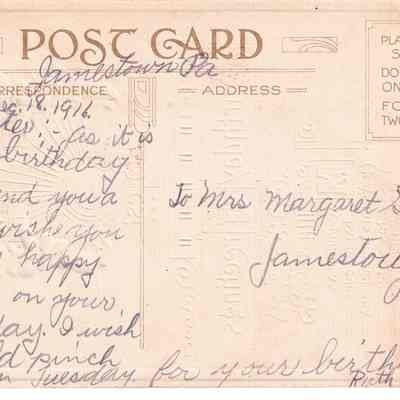 POST CARD
Jamestown Pa
RRESPONDENCE
ADDRESS
PLA
S
DO
ON
FO
TWO
ec. 18, 1916.
ter: as it is
birthday
end you a
wish you
happy
on your
day. I wish
ld pinch
n Tuesday. for your birth
Ruth
To Mrs Margaret S
Jamestow